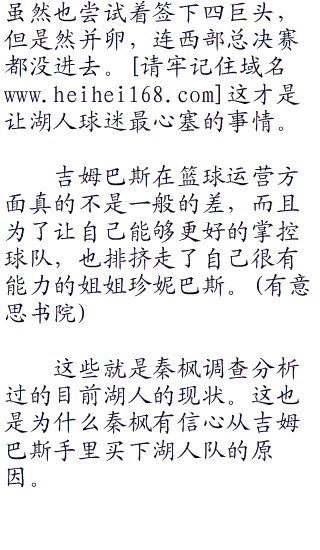 虽然也尝试着签下四巨头，
但是然并卵，连西部总决赛
都没进去。[请牢记住域名
www.heihei168.com]这才是
让湖人球迷最心塞的事情。
吉姆巴斯在篮球运营方
面真的不是一般的差，而且
为了让自己能够更好的掌控
球队，也排挤走了自己很有
能力的姐姐珍妮巴斯。(有意
思书院)
这些就是秦枫调查分析
过的目前湖人的现状。这也
是为什么秦枫有信心从吉姆
巴斯手里买下湖人队的原
因。